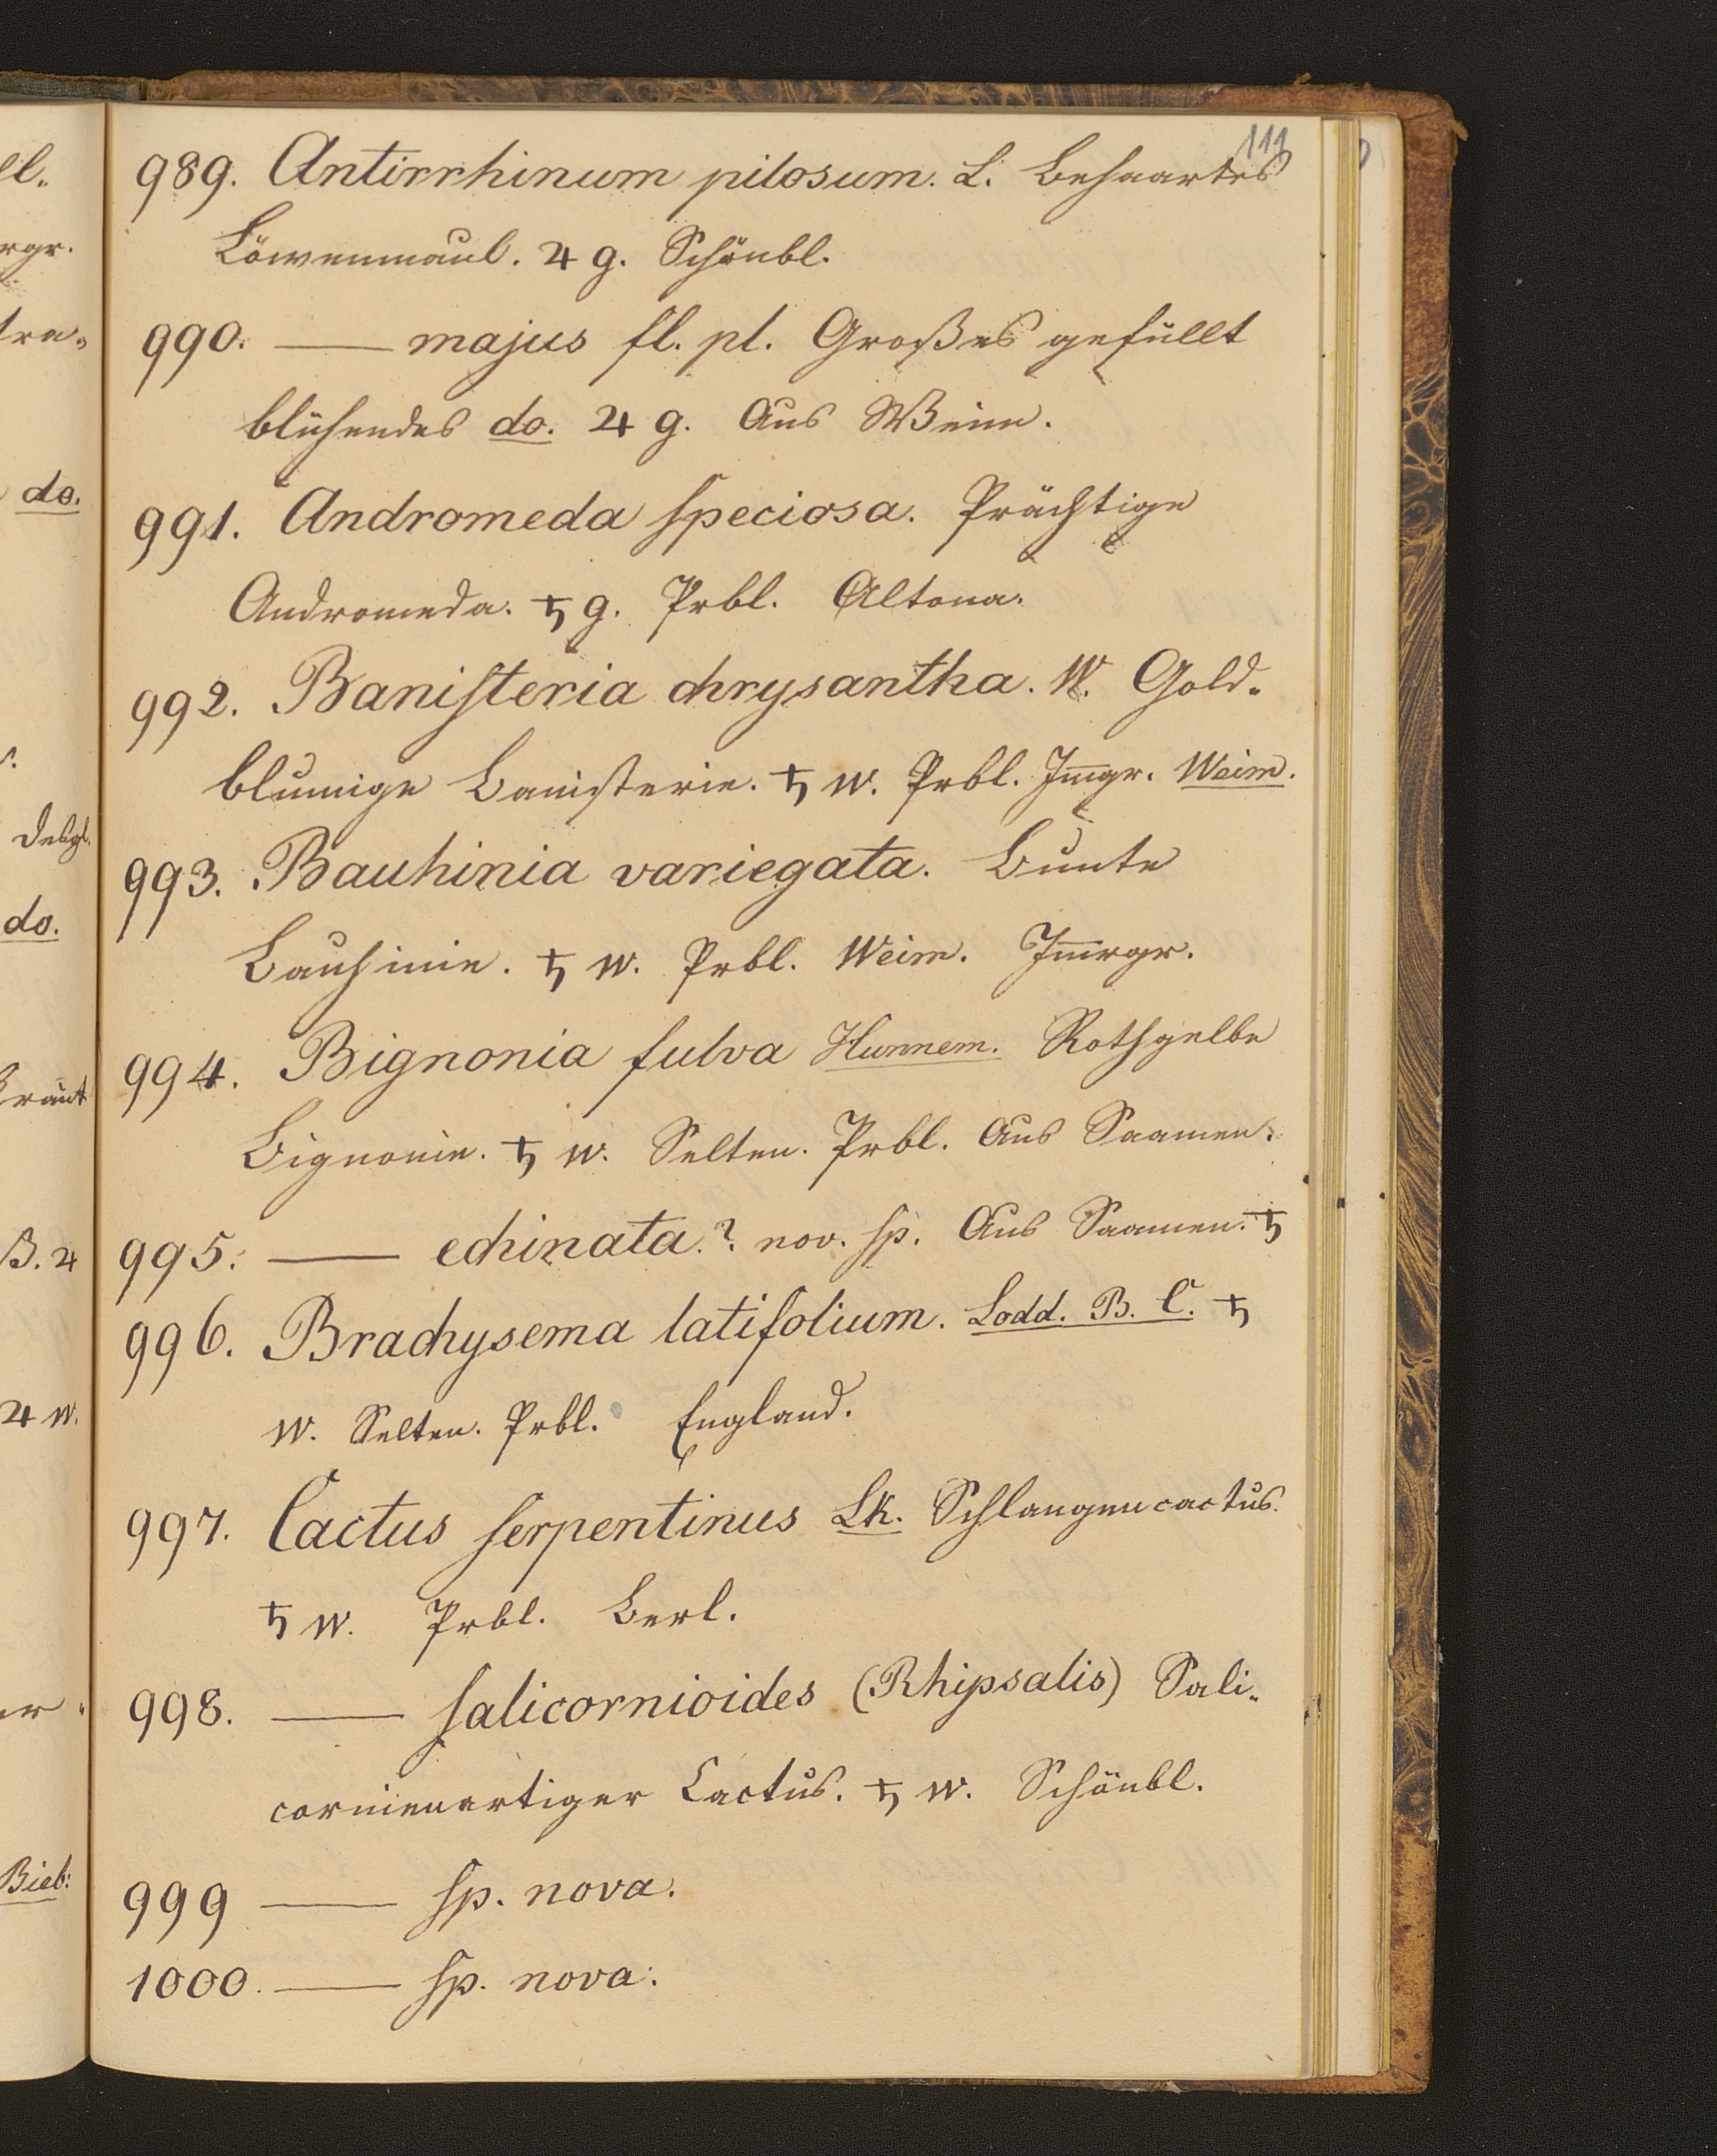 111
989. Antirrhinum pilosum. L. Behaartes
Löwenmaul. ♃ g. Schönbl.
990. — majus fl. pl. Großes gefüllt
blühendes do. ♃ g. Aus Weim.
991. Andromeda speciosa. Prächtige
Andromeda. ♄ g. Prbl. Altona.
992. Banisteria chrysantha. W. Gold-
blumige Banisterie. ♄ w. Prbl. Im̅gr. Weim.
993. Bauhinia variegata. Bunte
Bauhinie. ♄ w. Prbl. Weim. Im̅rgr.
994. Bignonia fulva Hunnem. Rothgelbe
Bignonie. ♄ w. Selten. Prbl. Aus Saamen.
995. — echinata? nov. sp. Aus Saamen. ♄
996. Brachysema latifolium. Lodd. B. C. ♄
w. Selten. Prbl. England.
997. Cactus serpentinus Lk. Schlangencactus.
♄ w. Prbl. Berl.
998. — salicornioides (Rhipsalis) Sali-
cornienartiger Cactus. ♄ w. Schönbl.
999 — sp. nova.
1000. — sp. nova.